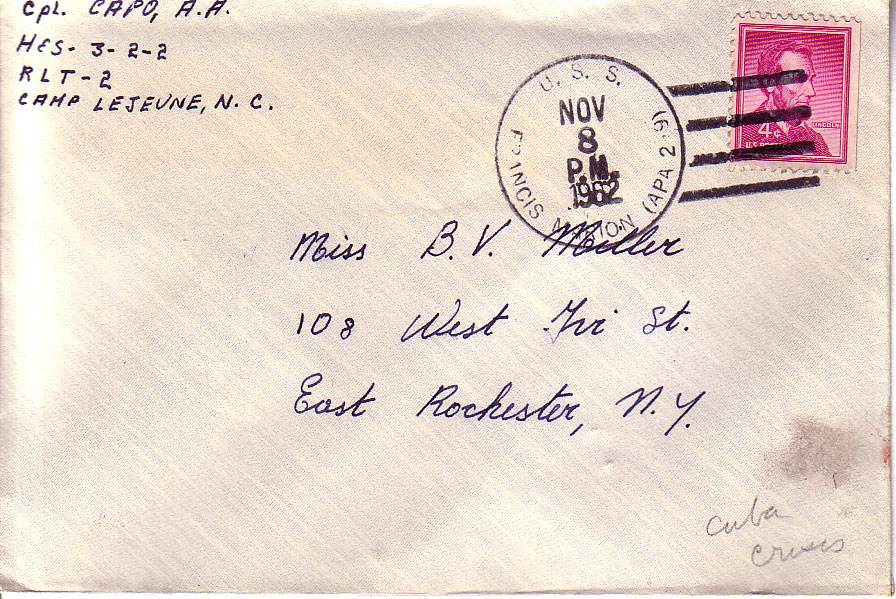 Cpl. CAPO, A.A.
H&S- 3-2-2
RLT-2
CAMP LEJEUNE, N.C.
U. S. S.
FRANCIS MARION (APA 249)
NOV
8
P.M.
1962
LINCOLN
4¢
Miss B. V. Miller
108 West Ivi St.
East Rochester, N.Y.
Cuba
crises